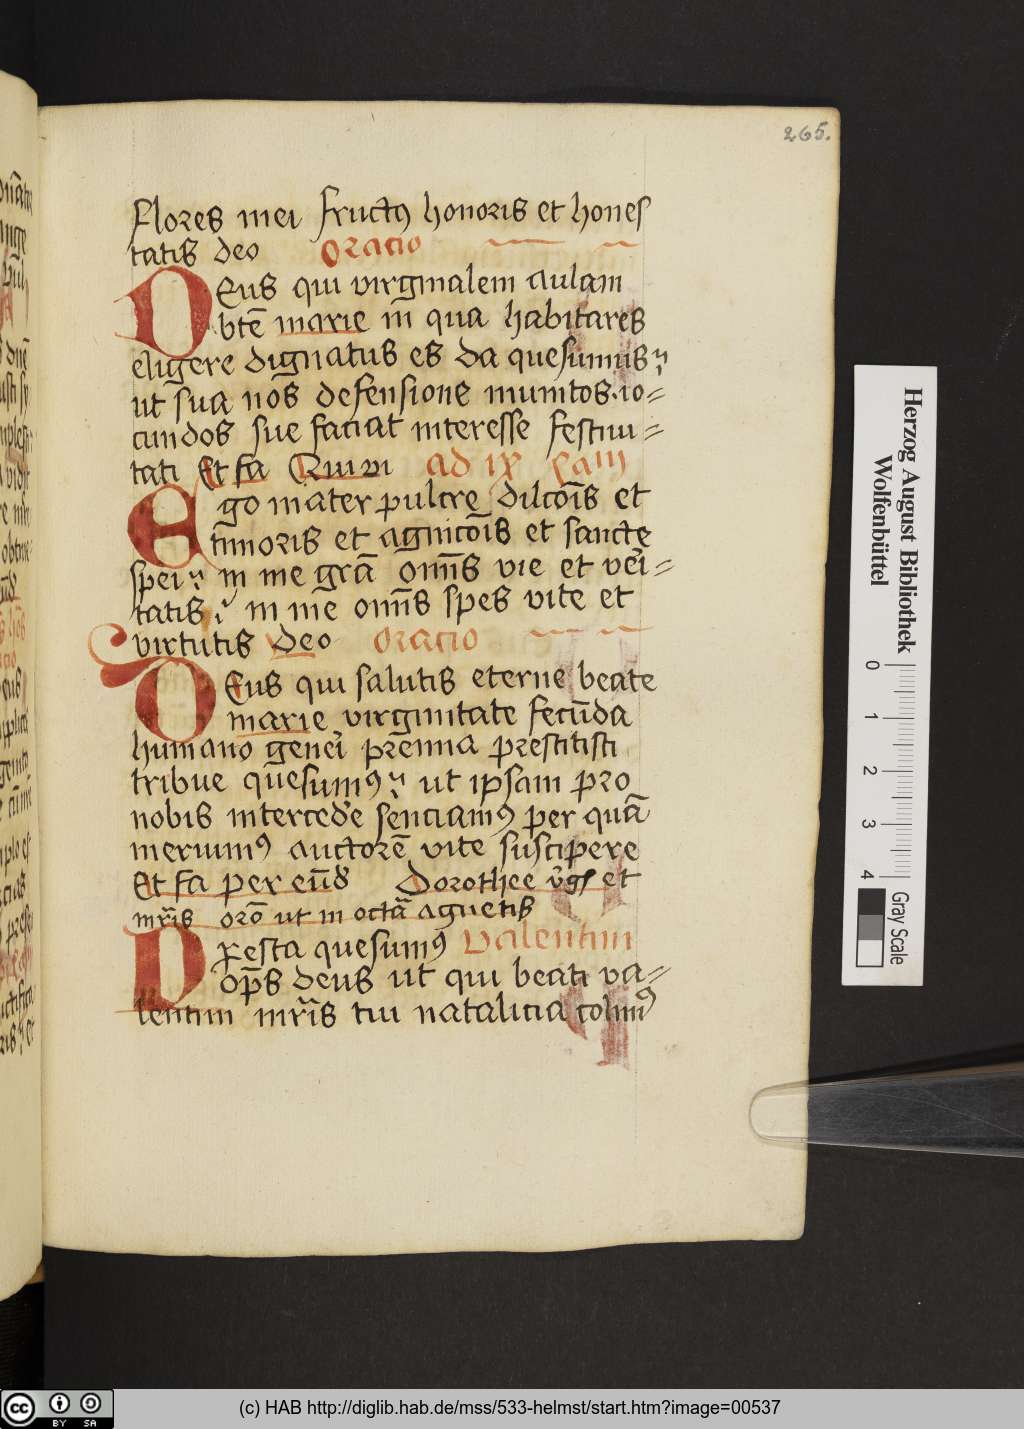 265.
Flores mei fructꝰ honoris et hones
tatis deo Oracio
Deus qui virginalem aulam
btē marie in qua habitares
eligere dignatus es da quesumus
ut sua nos defensione munitos io⸗
cundos sue faciat interesse festiui⸗
tati Et fa Qui vi ad ix Cam
Ego mater pulcre dilcōis et
timoris et agnicōis et sancte
spei in me grā om̄is vie et veri⸗
tatis in me om̄is spes vite et
virtutis deo Oracio
Deus qui salutis eterne beate
marie virginitate fecūda
humano generi premia prestitisti
tribue quesumꝰ ut ipsam pro
nobis intercede senciamꝰ per quā
meruimꝰ auctorē vite suscipere
Et fa per eūd Dorothee vḡs et
mr̄is orō ut in octā agnetis
Presta quesumꝰ Valentini
op̄s deus ut qui beati va⸗
lentini mr̄is tui natalicia colimꝰ
Herzog August Bibliothek
Wolfenbüttel
0 1 2 3 4
Gray Scale
cc BY SA
(c) HAB http://diglib.hab.de/mss/533-helmst/start.htm?image=00537